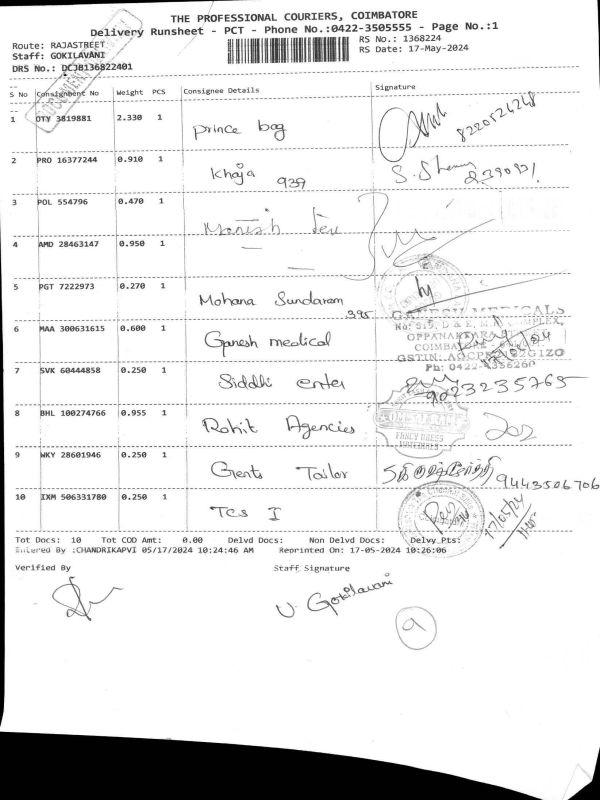 THE PROFESSIONAL COURIERS, COIMBATORE
Delivery Runsheet - PCT - Phone No.:0422-3505555 - Page No.:1
Route: RAJASTREET
Staff: GOKILAVANI
DRS No.: DCJB136822401
RS No.: 1368224
RS Date: 17-May-2024
S No Consignment No Weight PCS Consignee Details Signature
1 OTY 3819881 2.330 1 prince bag 8220524248
2 PRO 16377244 0.910 1 Khaja 939
3 POL 554796 0.470 1 Manish
4 AMD 28463147 0.950 1
5 PGT 7222973 0.270 1 Mohana Sundaram 395
6 MAA 300631615 0.600 1 Ganesh medical
GANESH MEDICALS
OPPANAKKARA ST
COIMBATORE
Ph: 0422-4356260
7 SVK 60444858 0.250 1 Siddhi enter 9023235765
8 BHL 100274766 0.955 1 Rohit Agencies
FANCY DRESS
9 WKY 28601946 0.250 1 Gents Tailor 9443506706
10 IXM 506331780 0.250 1 TCS I 17/05/24
Tot Docs: 10 Tot COD Amt: 0.00 Delvd Docs: Non Delvd Docs: Delvy Pts:
Entered By :CHANDRIKAPVI 05/17/2024 10:24:46 AM Reprinted On: 17-05-2024 10:26:06
Verified By Staff Signature
V. Gokilavani
9